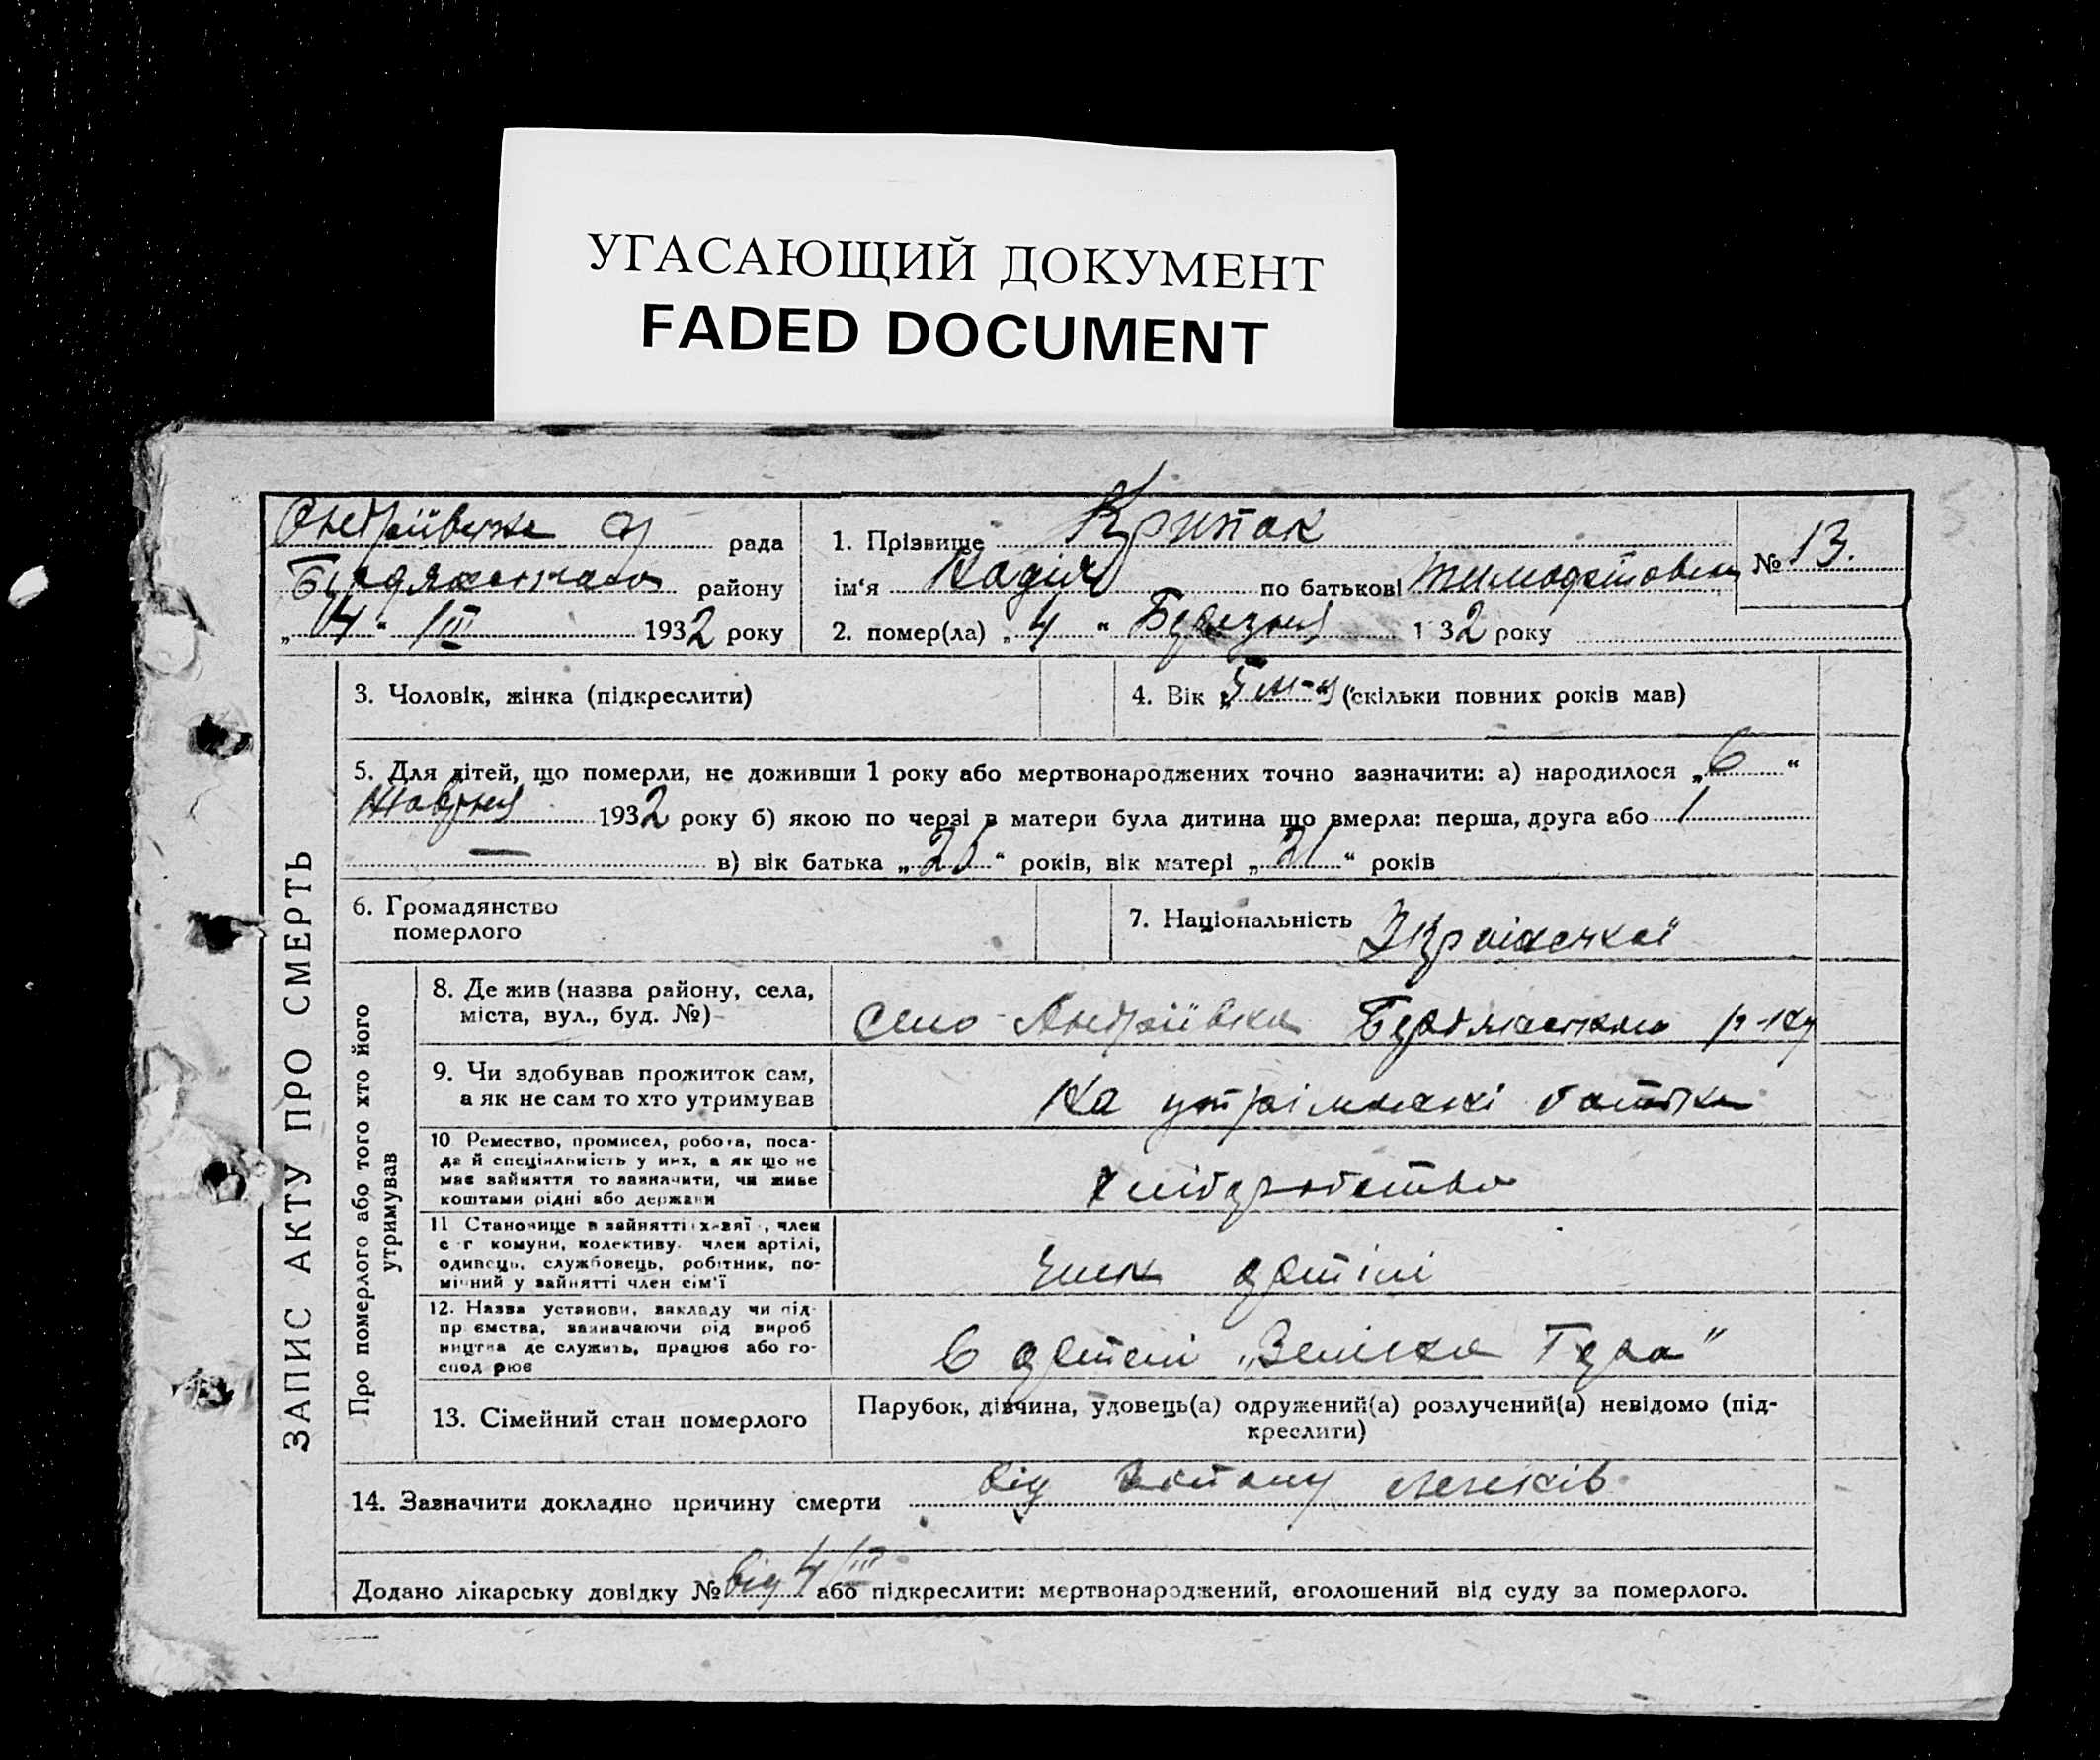 УГАСАЮЩИЙ ДОКУМЕНТ
FADED DOCUMENT
ЗАПИС АКТУ ПРО СМЕРТЬ
Андріївська с/ рада
Бердянського району
„4“ /III 1932 року
1. Прізвище Крипак
ім‘я Надія по батькові
№ 13.
2. помер(ла) „4“ Березня 1 32 року
3. Чоловік, жінка (підкреслити)
4. Вік 5 м-ц (скільки повних років мав)
5. Для дітей, що померли, не доживши 1 року або мертвонароджених точно зазначити: а) народилося „6“
Жовтня 1932 року б) якою по черзі в матери була дитина що вмерла: перша, друга або 1
— в) вік батька „“ років, вік матері „21“ років
6. Громадянство
померлого
7. Національність Української
Про померлого або того хто його
утримував
8. Де жив (назва району, села,
міста, вул., буд. №)
село Андріївка Бердянського р-ну
9. Чи здобував прожиток сам,
а як не сам то хто утримував
На утріманні батька
10 Ремество, промисел, робота, поса-
да й спеціяльність у них, а як що не
має зайняття то зазначити, чи живе
коштами рідні або держави
хліборобство
11 Становище в зайнятті , член
с г комуни, колективу, член артілі,
одинець, службовець, робітник, по-
мічний у зайнятті член сім‘ї
член артілі
12. Назва установи, закладу чи під-
пр ємства, зазначаючи рід вироб
ництва де служить, працює або го-
спод рює
в артелі „ Гора”
13. Сімейний стан померлого
Парубок, дівчина, удовець(а) одружений(а) розлучений(а) невідомо (під-
креслити)
14. Зазначити докладно причину смерти від легенів
Додано лікарську довідку № від 4/III або підкреслити: мертвонароджений, оголошений від суду за померлого.